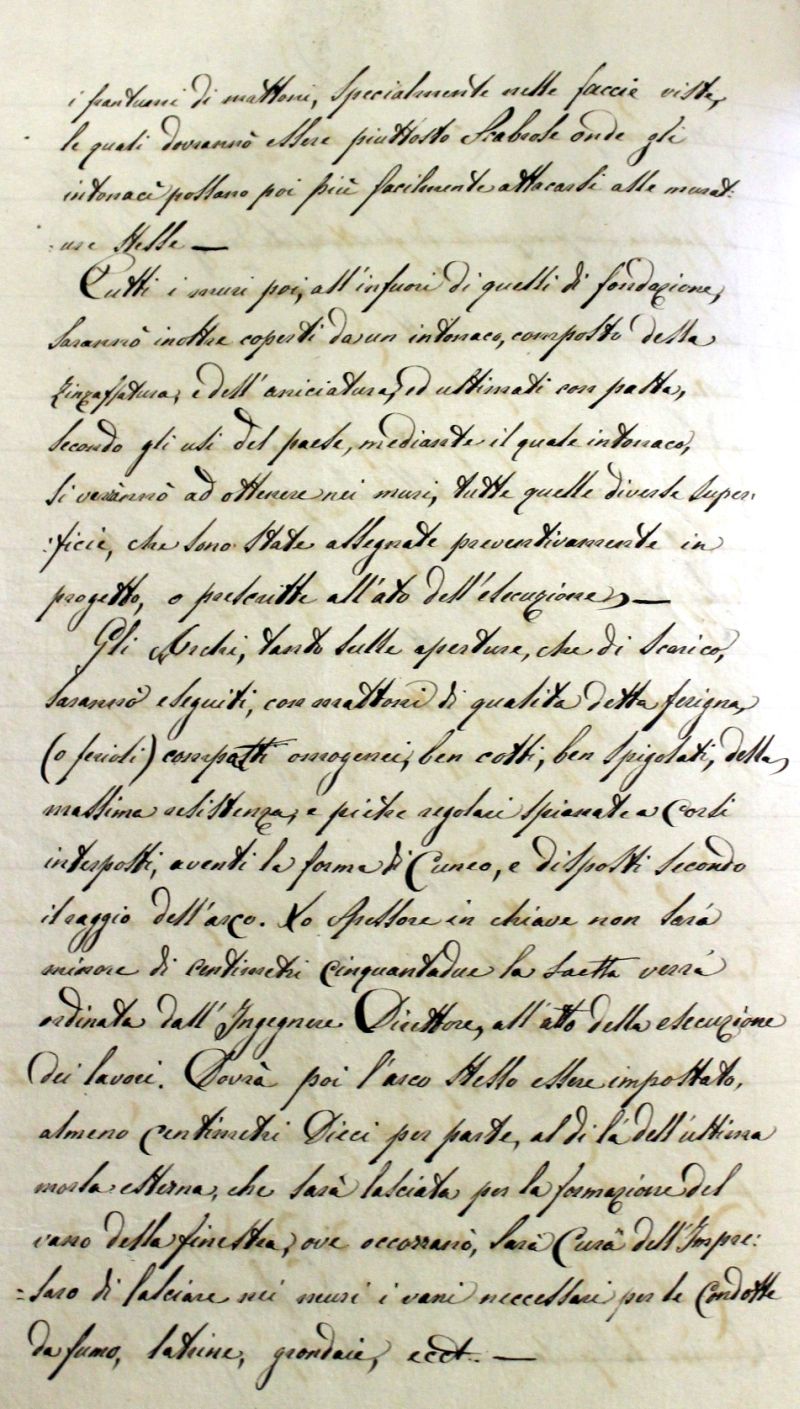 i frantumi di mattoni, specialmente nelle faccie viste,
le quali dovrannò essere piuttosto Scabrose onde gli
intonaci possano poi più facilmente attacarsi alle murat:
:ure stesse —
Tutti i muri poi, all'infuori di quelli di fondazione,
sarannò inoltre coperti da un intonaco, composto della
rinzaffatura, e dell'aniciatura, ed ultimati con patta,
secondo gli usi del paese, mediante il quale intonaco,
si verrànnò ad ottenere nei muri, tutte quelle diverse super:
:ficie, che sono state assegnate preventivamente in
progetto, o prescritte all'ato dell'esecuzione, —
Gli Archi, tanto sulle aperture, che di scarico,
sarannò eseguiti, con mattoni di qualita detta ferigna,
(o ferioli) compatti omogenei, ben cotti, ben spigolati, della
massima resistenza, e pietre regolari spianate a Corsi
interposti, aventi la forma di Cuneo, e disposti secondo
il raggio dell'arco. Lo spessore in chiave non sarà
minore di centimetri cinquantadue la saetta verrà
ordinata dall'Ingegnere Direttore, all'atto della esecuzione
dei lavori. Dovrà poi l'arco stesso essere impostato,
almeno Centimetri Dieci per parte, al di là dell'ultima
morsa esterna, che sarà lasciata per la formazione del
vano della finestra, ove occorranò, sarà Curà dell'Impre:
:saro di lasciare nei muri i vani neccessari per le Condotte
da fumo, latrine, grondaie, ecct. —